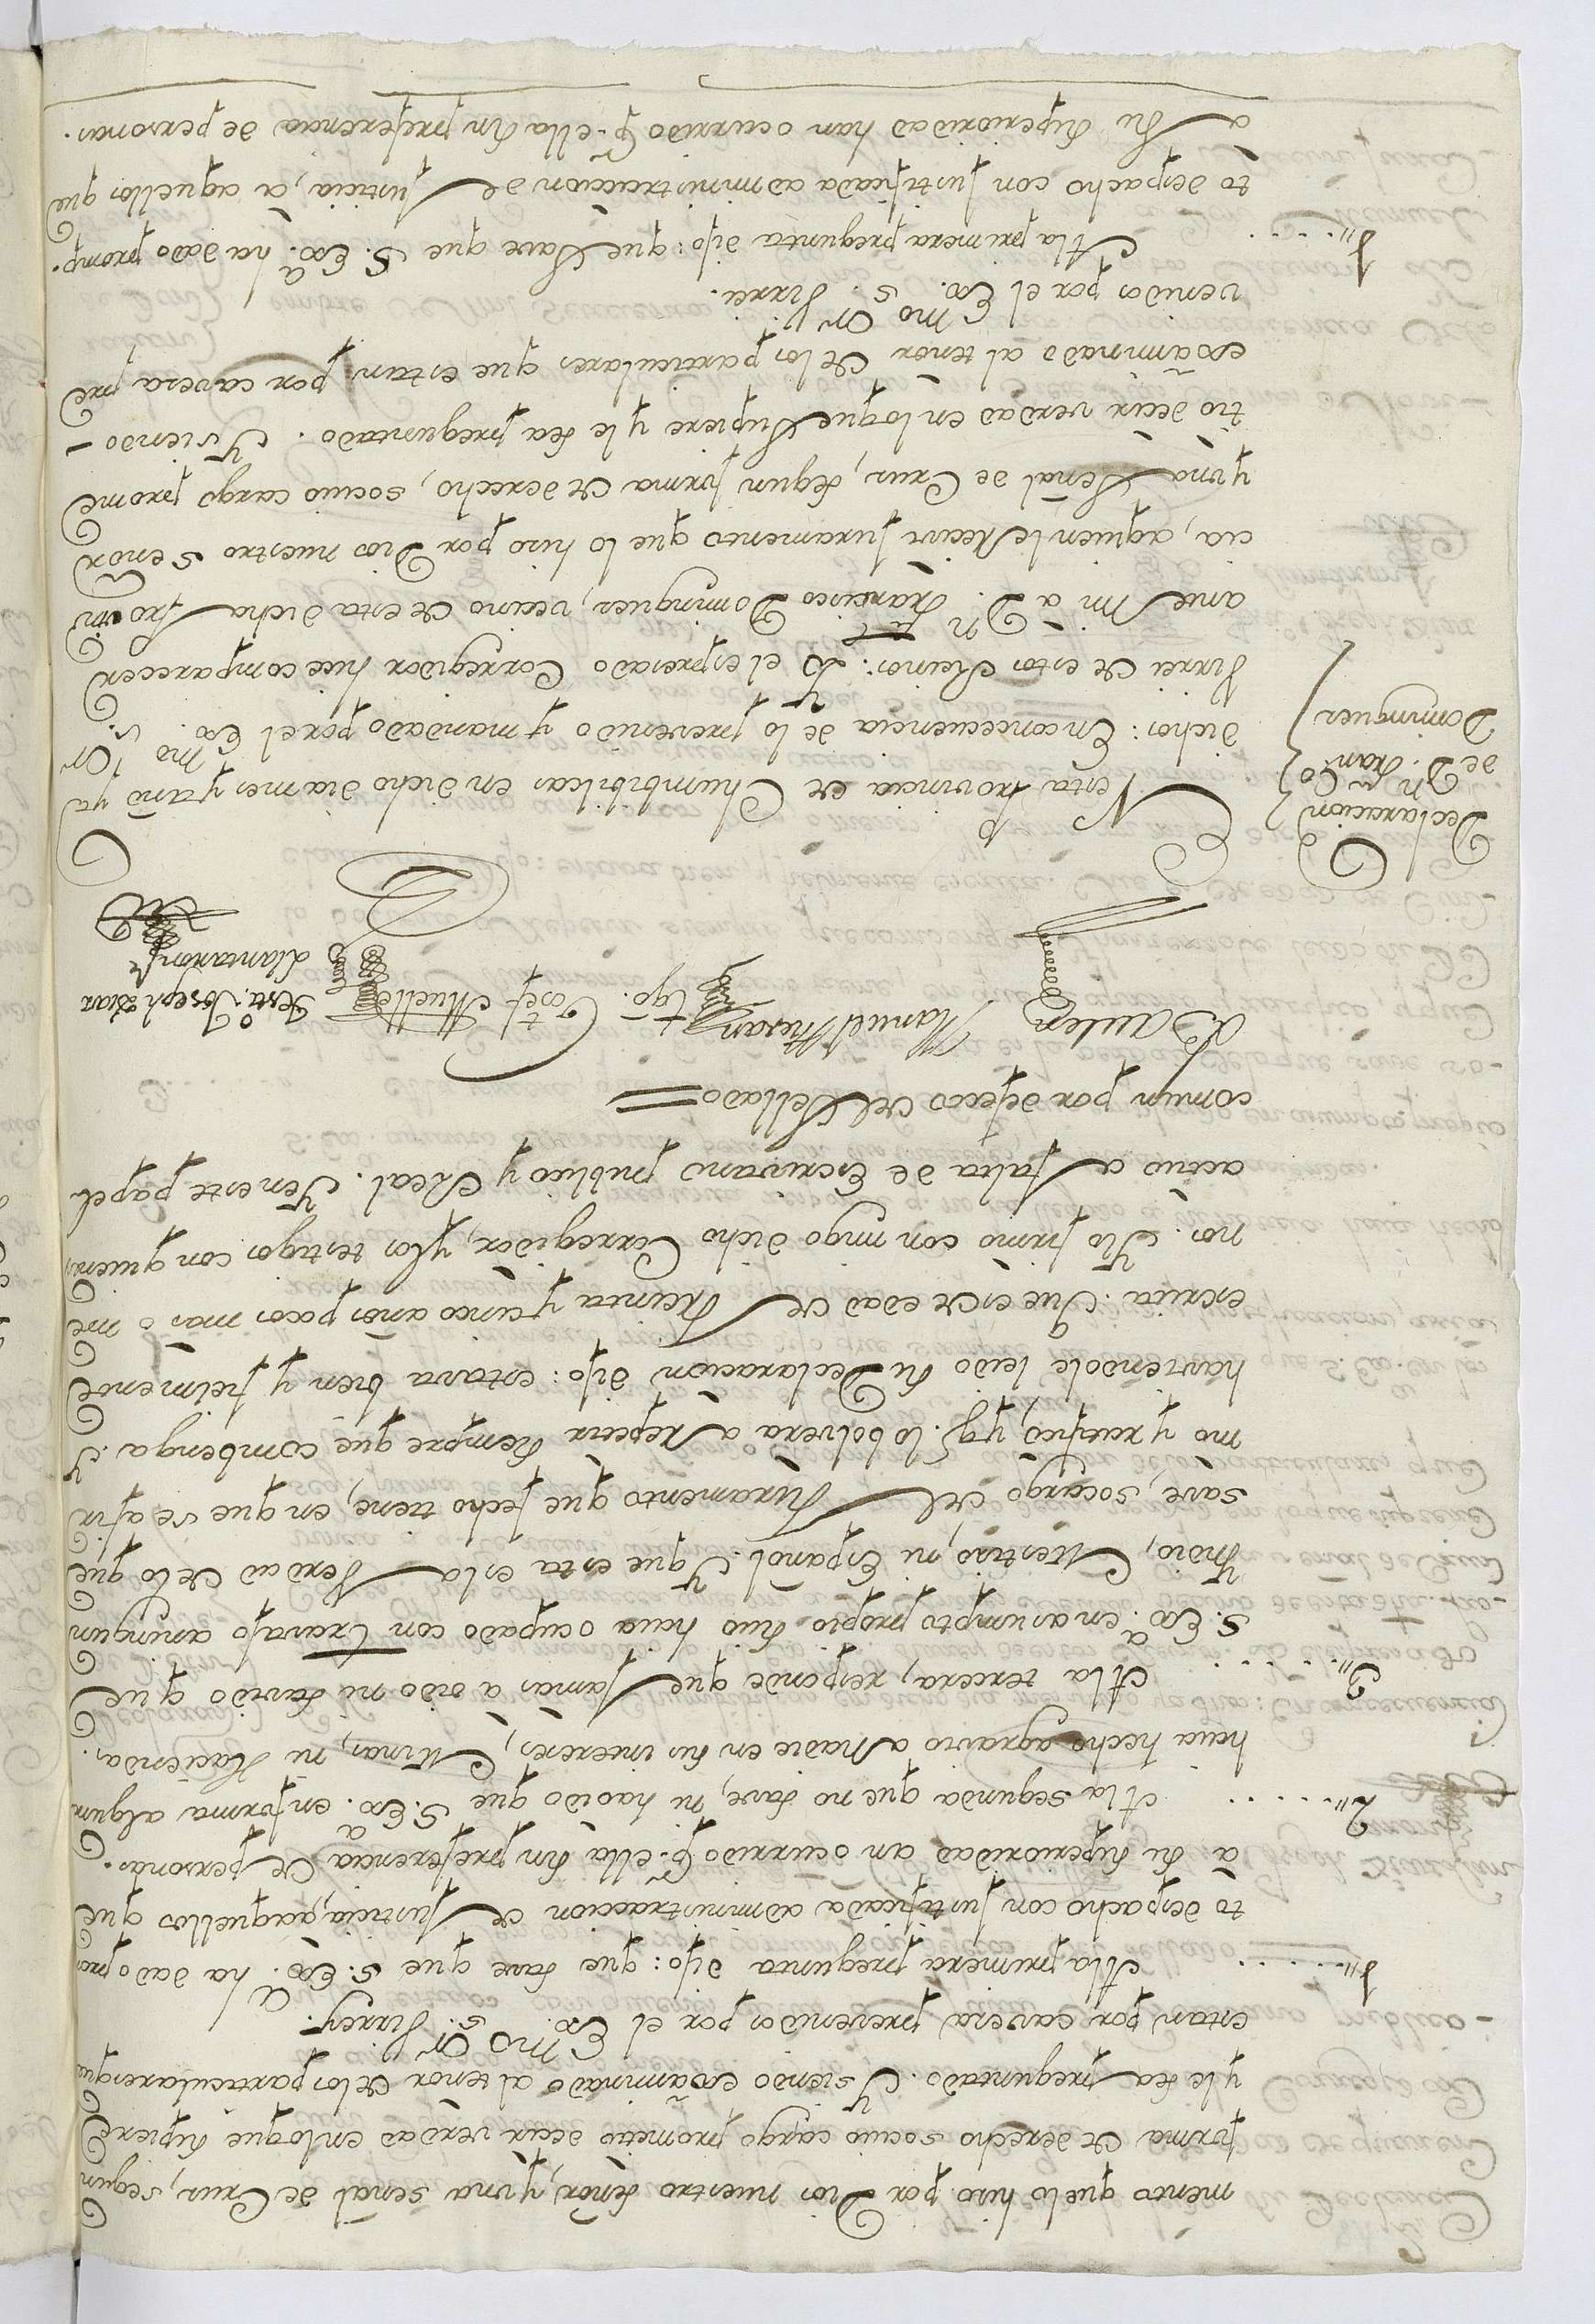 mento que lo hiso por Dios nuestro señor, y una señal de Crus, segun
forma de derecho socuio cargo prometio decir verdad en loque supiere
y le sea preguntado. Y siendo exâminado al tenor de los particulares que
estan por cavera prevenidos por el Exmo. Sr. Virrey.
1,,..... A la primera pregunta dijo: que save que S. Exa. ha dado prom
to despacho con justificada administracion de justicia, aaquellos que
â su superioridad an ocurrido pr. ella sin preferencia de personas.
2,,..... A la segunda que no save, ni haoido que S. Exa. en forma alguna
haia hecho agravio a Nadie en sus intereses, Minas, ni Haciendas.
3,,..... A la tercera, responde que jamas a oido ni savido que
S. Exa. en asumpto propio suio haia ocupado con travajo aningun
Yndio, Mestiso, ni Español. Y que esta esla Verdad de lo que
save, socargo del Juramento que fecho tiene, en que se afir
mo y ratificó, y qe. lo bolvera a Repetir siempre que combenga. Y
haviendole leido su Declaracion dijo: estava bien y fielmente
escrita: Que es de edad de treinta y cinco años pocos mas o me
nos. Y lo firmó con migo dicho Corregidor, y los testigos con quienes
actuo a falta de Escrivano publico y Real. Y en este papel
comun por defecto del Sellado =
Manuel tgo. Josef tgo. Joseph Dias
Declaracion
de Dn. Franco.
Dominguez
EN esta Provincia de Chumbibilcas en dicho dia mes y año ya
dichos: En concecuencia de lo prevenido y mandado por el Exmo. Sr.
Virrei de estos Reinos: Yo el espresado Corregidor hice comparecer
ante mi a Dn. Francisco Dominguez, vecino de esta dicha Provin
cia, aquien le Recivi juramento que lo hiso por Dios nuestro Señor
y una Señal de Crus, segun forma de derecho, socuio cargo prome
tió decir verdad en loque Supiere y le sea preguntado. Y siendo -
exâminado al tenor de los particulares que estan por cavera pre
venidos por el Exmo. Sr. Virrei.
1,,..... A la primera pregunta dijo: que Save que S. Exa. ha dado promp.
to despacho con justificada administracion de justicia, â aquellos que
a su superioridad han ocurrido pr. ella sin preferencia de personas.